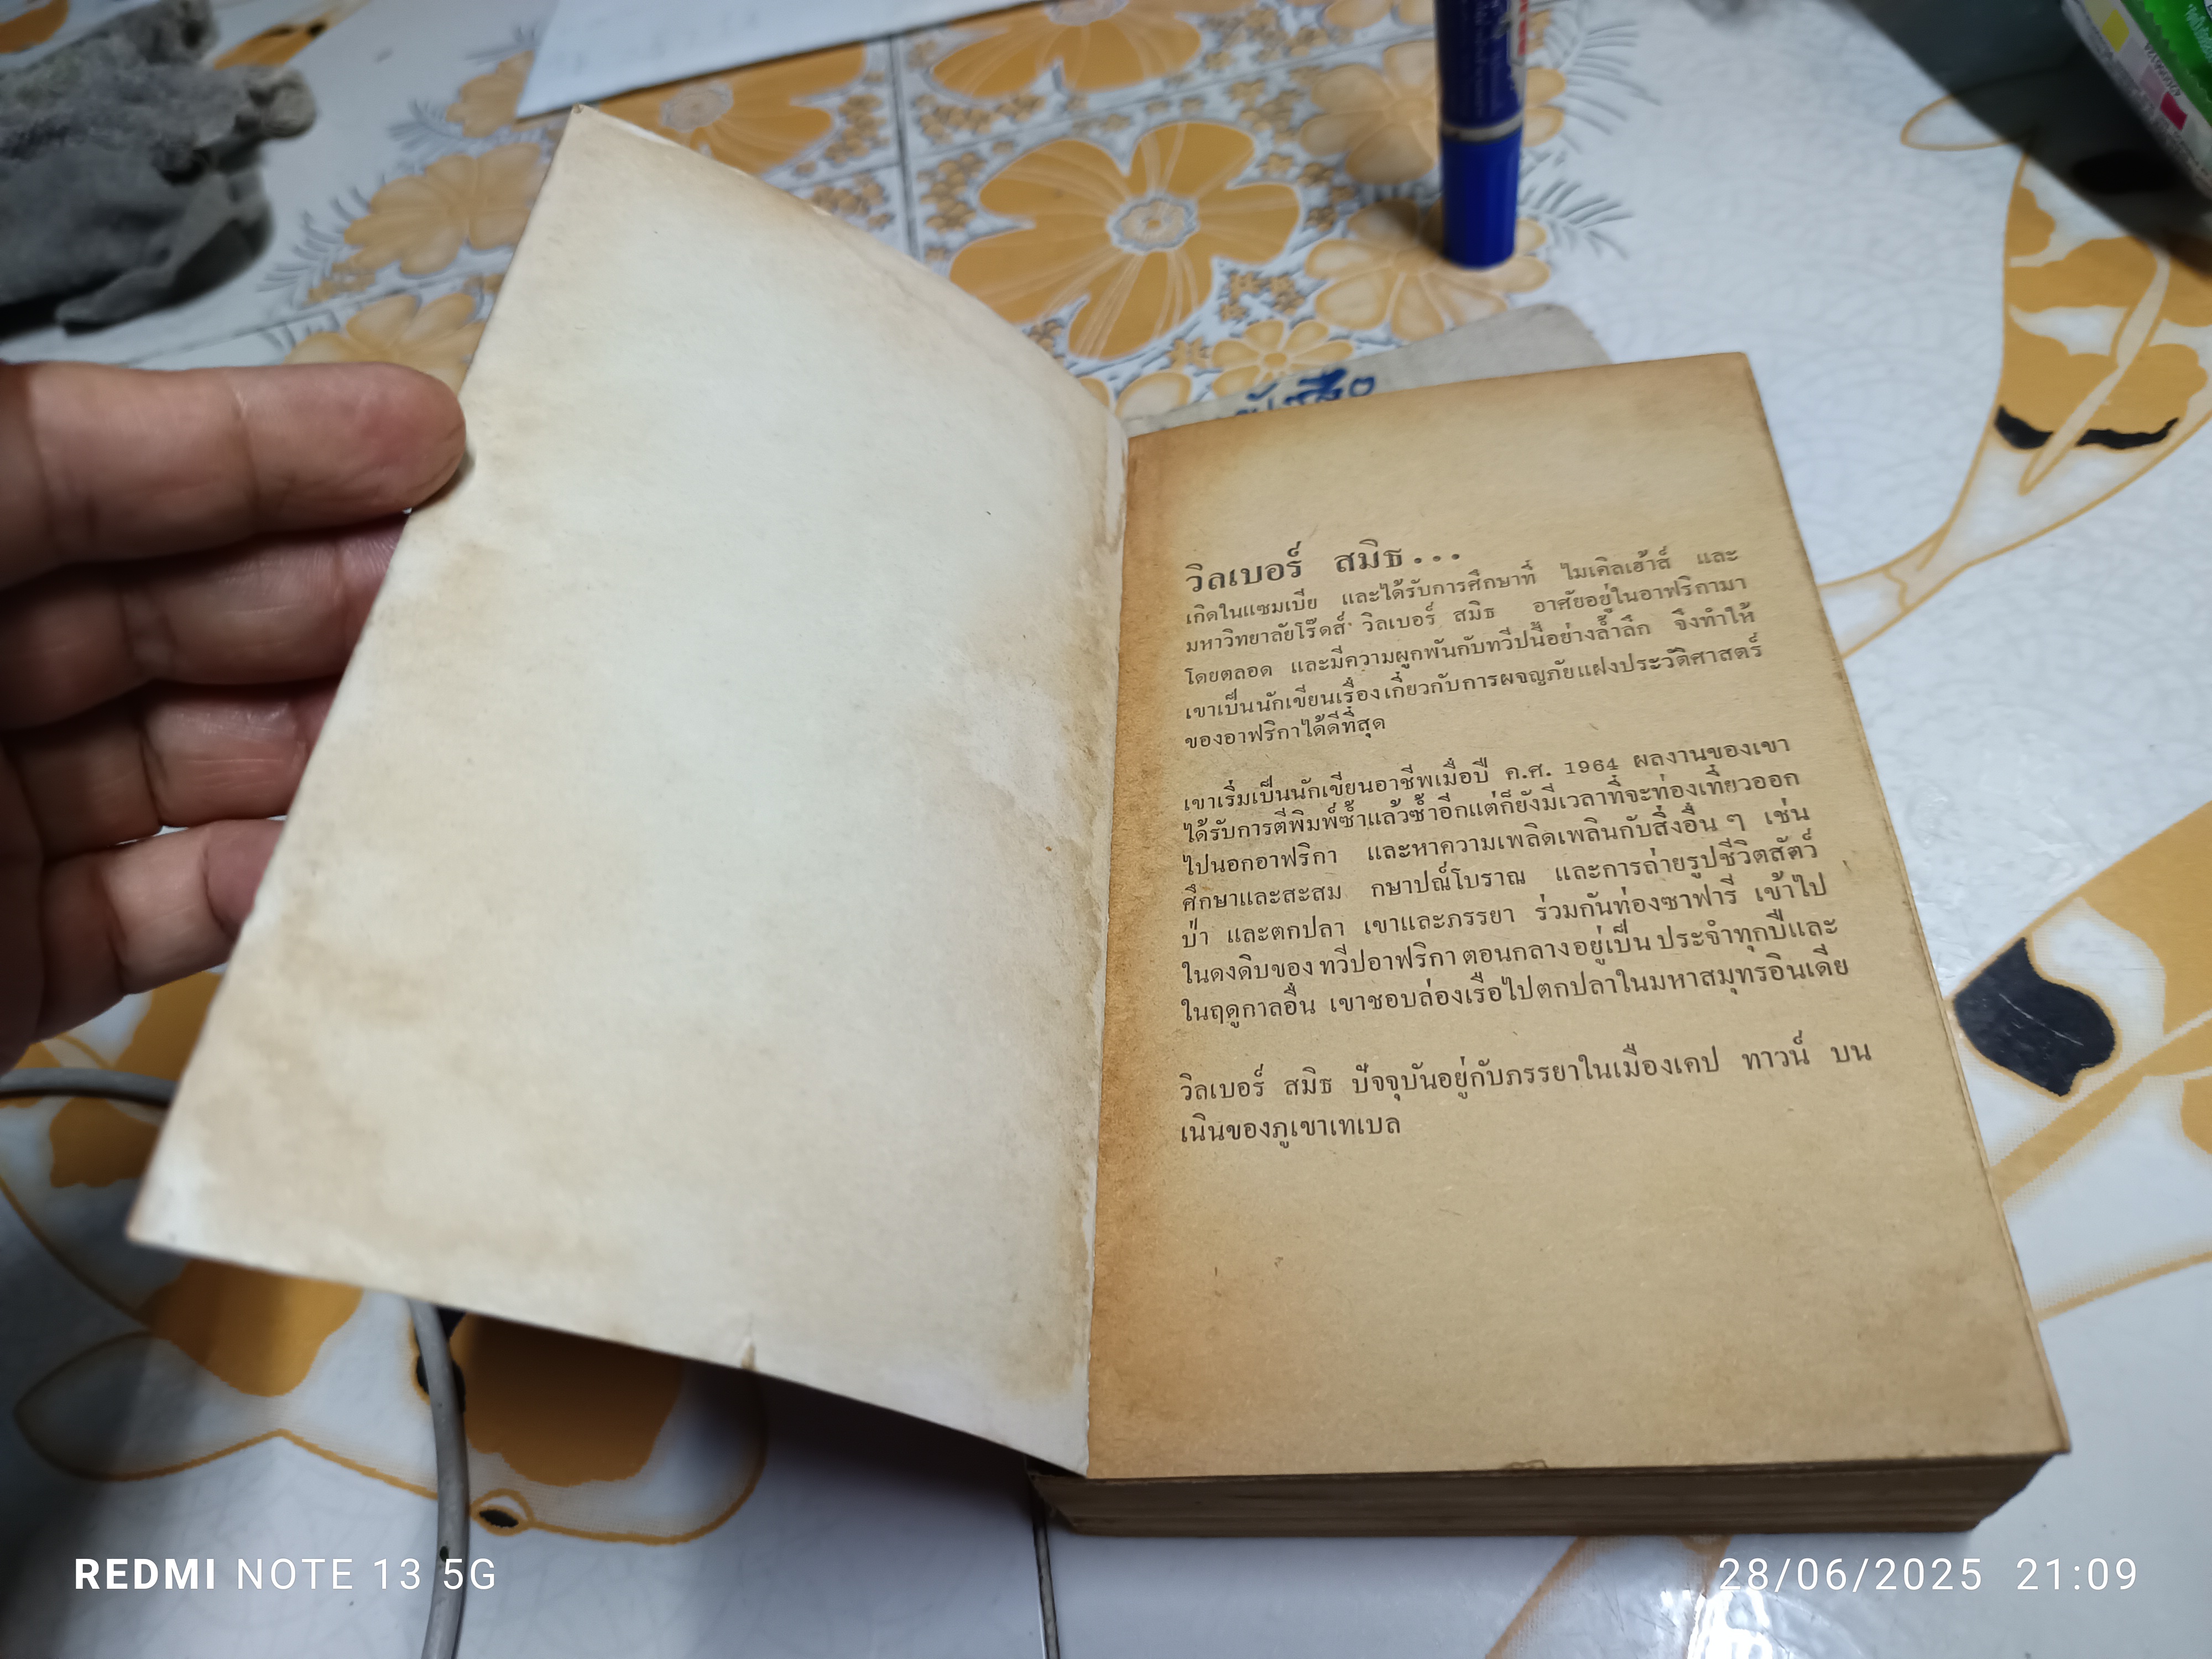 วิลเบอร์ สมิธ...
เกิดในแซมเบีย และได้รับการศึกษาที่ ไมเคิลเฮ้าส์ และ
มหาวิทยาลัยโร๊ดส์ วิลเบอร์ สมิธ อาศัยอยู่ในอาฟริกามา
โดยตลอด และมีความผูกพันกับทวีปนี้อย่างล้ำลึก จึงทำให้
เขาเป็นนักเขียนเรื่องเกี่ยวกับการผจญภัยแฝงประวัติศาสตร์
ของอาฟริกาได้ดีที่สุด
เขาเริ่มเป็นนักเขียนอาชีพเมื่อปี ค.ศ. 1964 ผลงานของเขา
ได้รับการตีพิมพ์ซ้ำแล้วซ้ำอีกแต่ก็ยังมีเวลาที่จะท่องเที่ยวออก
ไปนอกอาฟริกา และหาความเพลิดเพลินกับสิ่งอื่น ๆ เช่น
ศึกษาและสะสม กษาปณ์โบราณ และการถ่ายรูปชีวิตสัตว์
ป่า และตกปลา เขาและภรรยา ร่วมกันท่องซาฟารี เข้าไป
ในดงดิบของ ทวีปอาฟริกา ตอนกลาง อยู่เป็น ประจำทุกปีและ
ในฤดูกาลอื่น เขาชอบล่องเรือไปตกปลาในมหาสมุทรอินเดีย
วิลเบอร์ สมิธ ปัจจุบันอยู่กับภรรยาในเมืองเคป ทาวน์ บน
เนินของภูเขาเทเบล
REDMI NOTE 13 5G
28/06/2025 21:09